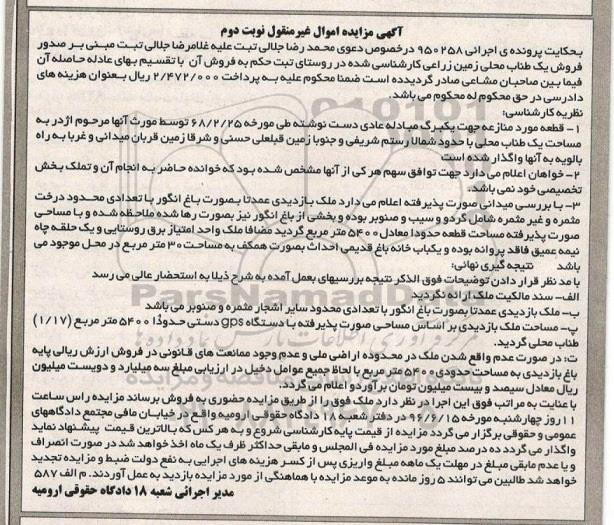 آگهی مزایده اموال غیرمنقول نوبت دوم
بحکایت پرونده ی اجرائی ۹۵۰۲۵۸ درخصوص دعوی محمد رضا جلالی ثبت علیه غلامرضا جلالی ثبت مبنی بر صدور
فروش یک طناب محلی زمین زراعی کارشناسی شده در روستای ثبت حکم به فروش آن با تقسیم بهای عادله حاصله آن
فیما بین صاحبان مشاعی صادر گردیدده است ضمنا محکوم علیه به پرداخت ۲/۴۷۲/۰۰۰ ریال بعنوان هزینه های
دادرسی در حق محکوم له محکوم می باشد.
نظریه کارشناسی:
۱- قطعه مورد منازعه جهت یکبرگ مبادله عادی دست نوشته طی مورخه ۶۸/۲/۲۵ توسط مورث آنها مرحوم اژدر به
مساحت یک طناب محلی با حدود شمالا رستم شریفی و جنوبا زمین قبلعلی حسنی و شرقا زمین قربان میدانی و غربا به راه
بالویه به آنها واگذار شده است
۲- خواهان اعلام می دارد جهت توافق سهم هر کی از آنها مشخص شده بود که خوانده حاضر به انجام آن و تملک بخش
تخصیصی خود نمی باشد.
۳- با بررسی میدانی صورت پذیرفته اعلام می دارد ملک بازدیدی عمدتا بصورت باغ انگور با تعدادی محدود درخت
مثمره و غیر مثمره شامل گردو و سیب و صنوبر بوده و بخشی از باغ انگور نیز بصورت رها شده ملاحظه شده و با مساحی
صورت پذیرفته مساحت قطعه حدودا معادل ۵۴۰۰ متر مربع گردید مضافا ملک واجد امتیاز برق روستایی و یک حلقه چاه
نیمه عمیق فاقد پروانه بوده و یکباب خانه باغ قدیمی احداث بصورت همکف به مساحت ۳۰ متر مربع در محل موجود می
باشد نتیجه گیری نهائی:
با مد نظر قرار دادن توضیحات فوق الذکر نتیجه بررسیهای بعمل آمده به شرح ذیلا به استحضار عالی می رسد
الف- سند مالکیت ملک ارائه نگردید
ب- ملک بازدیدی عمدتا بصورت باغ انگور با تعدادی محدود سایر اشجار مثمره و صنوبر می باشد
پ- مساحت ملک بازدیدی بر اساس مساحی صورت پذیرفته با دستگاه gps دستی حدوداً ۵۴۰۰ متر مربع (۱/۱۷)
طناب محلی گردید.
ت: در صورت عدم واقع شدن ملک در محدوده اراضی ملی و عدم وجود ممانعت های قانونی در فروش ارزش ریالی پایه
باغ بازدیدی به مساحت حدودی ۵۴۰۰ متر مربع با لحاظ جمیع عوامل دخیل در ارزیابی مبلغ سه میلیارد و دویست میلیون
ریال معادل سیصد و بیست میلیون تومان برآورد و اعلام می گردد.
با عنایت به مراتب فوق این اجرا در نظر دارد ملک فوق را از طریق مزایده حضوری به فروش برساند مزایده راس ساعت
۱۱ روز چهارشنبه مورخه ۹۶/۹/۱۵ در دفتر شعبه ۱۸ دادگاه حقوقی ارومیه واقع در خیابان مافی مجتمع دادگاههای
عمومی و حقوقی برگزار می گردد مزایده از قیمت پایه کارشناسی شروع و به هر کس که بالاترین قیمت پیشنهاد نماید
واگذار می گردد ده درصد مبلغ مورد مزایده فی المجلس و مابقی حداکثر ظرف یک ماه اخذ خواهد شد در صورت انصراف
و یا عدم مابقی مبلغ در مهلت یک ماهه مبلغ واریزی پس از کسر هزینه های اجرایی به نفع دولت ضبط و مزایده تجدید
خواهد شد طالبین می توانند ۵ روز مانده به موعد مزایده با هماهنگی از مورد مزایده بازدید به عمل آوردند. م الف ۵۸۷
مدیر اجرائی شعبه ۱۸ دادگاه حقوقی ارومیه
ParsNamadData